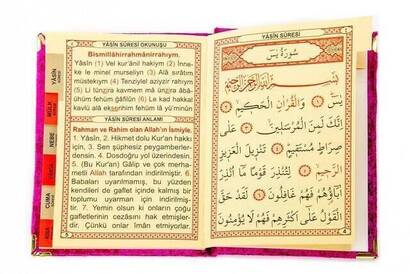 YÂSİN SÛRESİ OKUNUŞU
Bismillâhirrahmânirrahıym.
Yâsîn (1) Vel kur'ânil hakiym (2) İnne-
ke le minel murseliyn (3) Alâ sırâtım
müstekiym (4) Tenziylel aziyzir rahiym
(5) Li tünzira kavmem mâ ünzira âbâ-
ühüm fehüm ğâfilûn (6) Le kad hakkal
kavlü alâ ekserihim fehüm lâ yü'minûn
YÂSİN SÛRESİ ANLAMI
Rahman ve Rahim olan Allah'ın İsmiyle.
1. Yâsîn, 2. Hikmet dolu Kur'an hakkı
için, 3. Sen şüphesiz peygamberler-
densin. 4. Dosdoğru yol üzerindesin.
5. (Bu Kur'an) Gâlip ve çok merha-
metli Allah tarafından indirilmiştir. 6.
Babaları uyarılmamış, bu yüzden
kendileri de gaflet içinde kalmış bir
toplumu uyarman için indirilmiş-
tir. 7. Yemin olsun ki onların çoğu
gafletlerinin cezasını hak etmişler-
dir. Çünkü onlar îman etmiyorlar.
5
YÂSİN
SÛRESİ
MÜLK
NEBE
CUMA
YÂSİN SÛRESİ
سُورَةُ يٰسٓ
بِسْمِ اللهِ الرَّحْمٰنِ الرَّحِيمِ
يٰسٓ ﴿١﴾ وَالْقُرْاٰنِ الْحَكِيمِ ﴿٢﴾
اِنَّكَ لَمِنَ الْمُرْسَلِينَ ﴿٣﴾ عَلٰى
صِرَاطٍ مُسْتَقِيمٍ ﴿٤﴾ تَنْزِيلَ الْعَزِيزِ
الرَّحِيمِ ﴿٥﴾ لِتُنْذِرَ قَوْمًا مَا اُنْذِرَ
اٰبَاؤُهُمْ فَهُمْ غَافِلُونَ ﴿٦﴾ لَقَدْ حَقَّ
الْقَوْلُ عَلٰى اَكْثَرِهِمْ فَهُمْ لَا يُؤْمِنُونَ
4